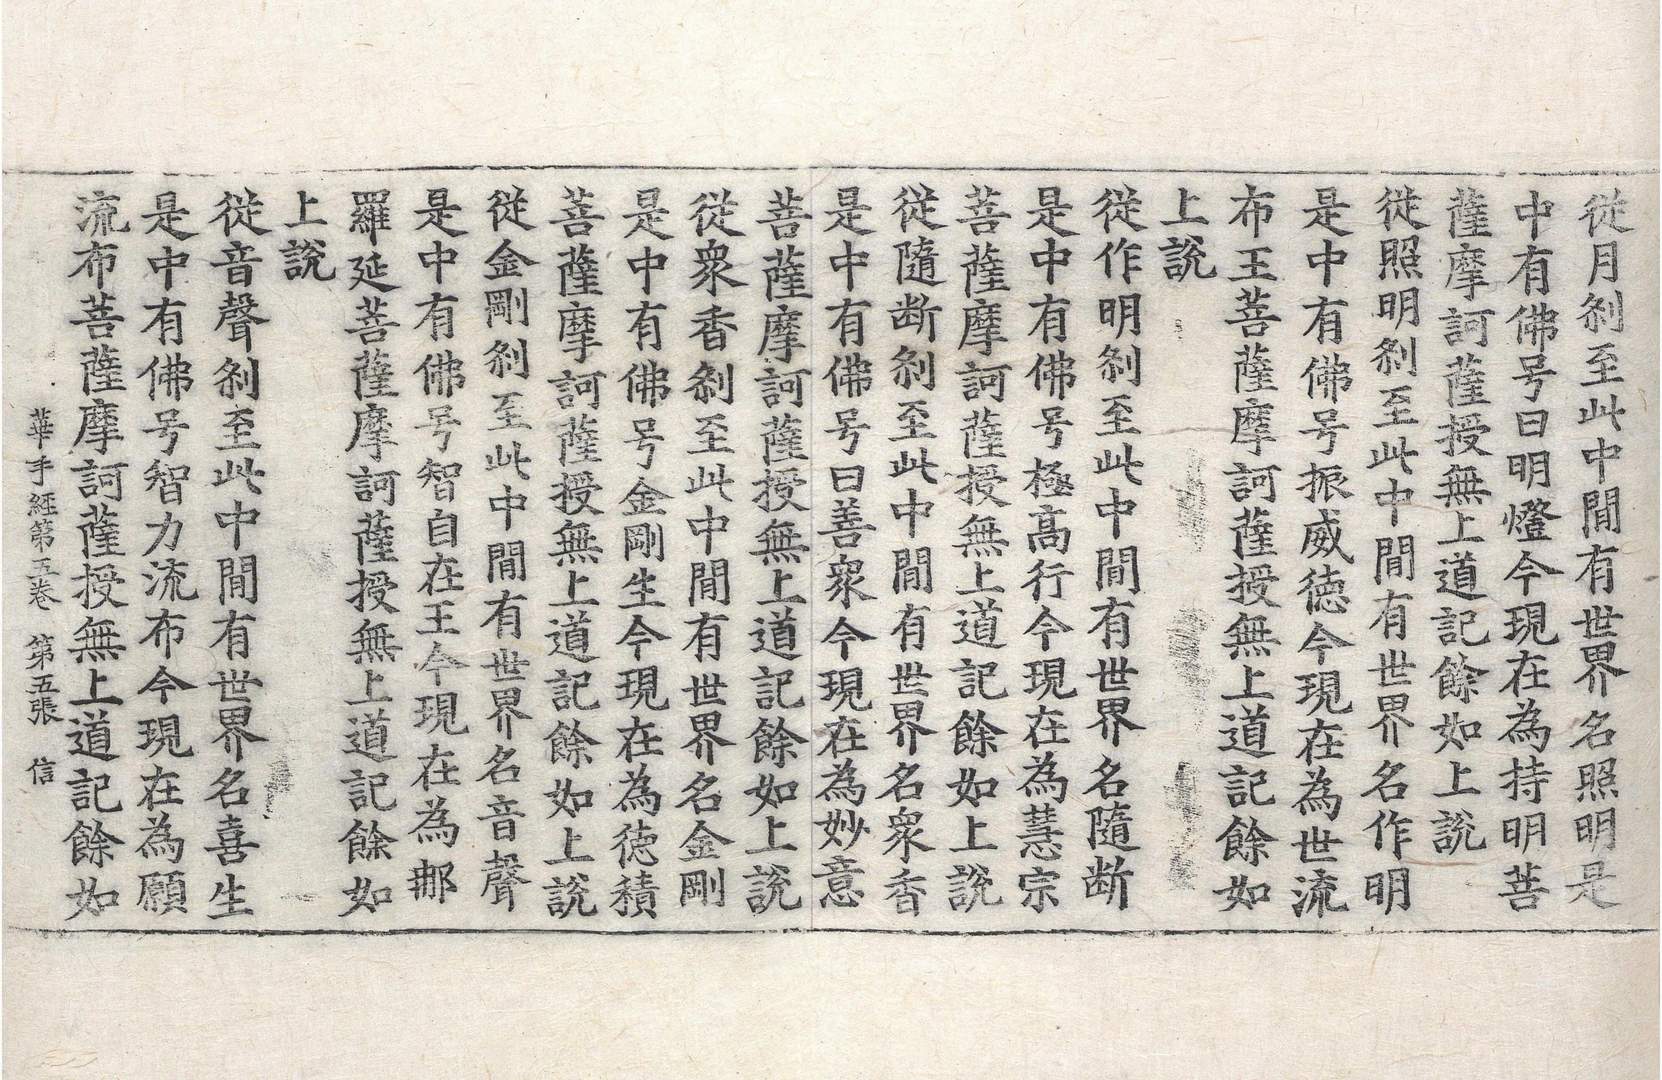 従月刹至此中閒有世界名照明是
中有佛号曰明燈今現在為持明菩
薩摩訶薩授無上道記餘如上說
従照明刹至此中閒有世界名作明
是中有佛号振威徳今現在為世流
布王菩薩摩訶薩授無上道記餘如
上說
従作明刹至此中閒有世界名隨断
是中有佛号極高行今現在為慧宗
菩薩摩訶薩授無上道記餘如上說
従隨断刹至此中閒有世界名衆香
是中有佛号曰善衆今現在為妙意
菩薩摩訶薩授無上道記餘如上說
従衆香刹至此中閒有世界名金剛
是中有佛号金剛生今現在為徳積
菩薩摩訶薩授無上道記餘如上說
従金剛刹至此中閒有世界名音聲
是中有佛号智自在王今現在為那
羅延菩薩摩訶薩授無上道記餘如
上說
従音聲刹至此中閒有世界名喜生
是中有佛号智力流布今現在為願
流布菩薩摩訶薩授無上道記餘如
華手經第五卷 第五張 信